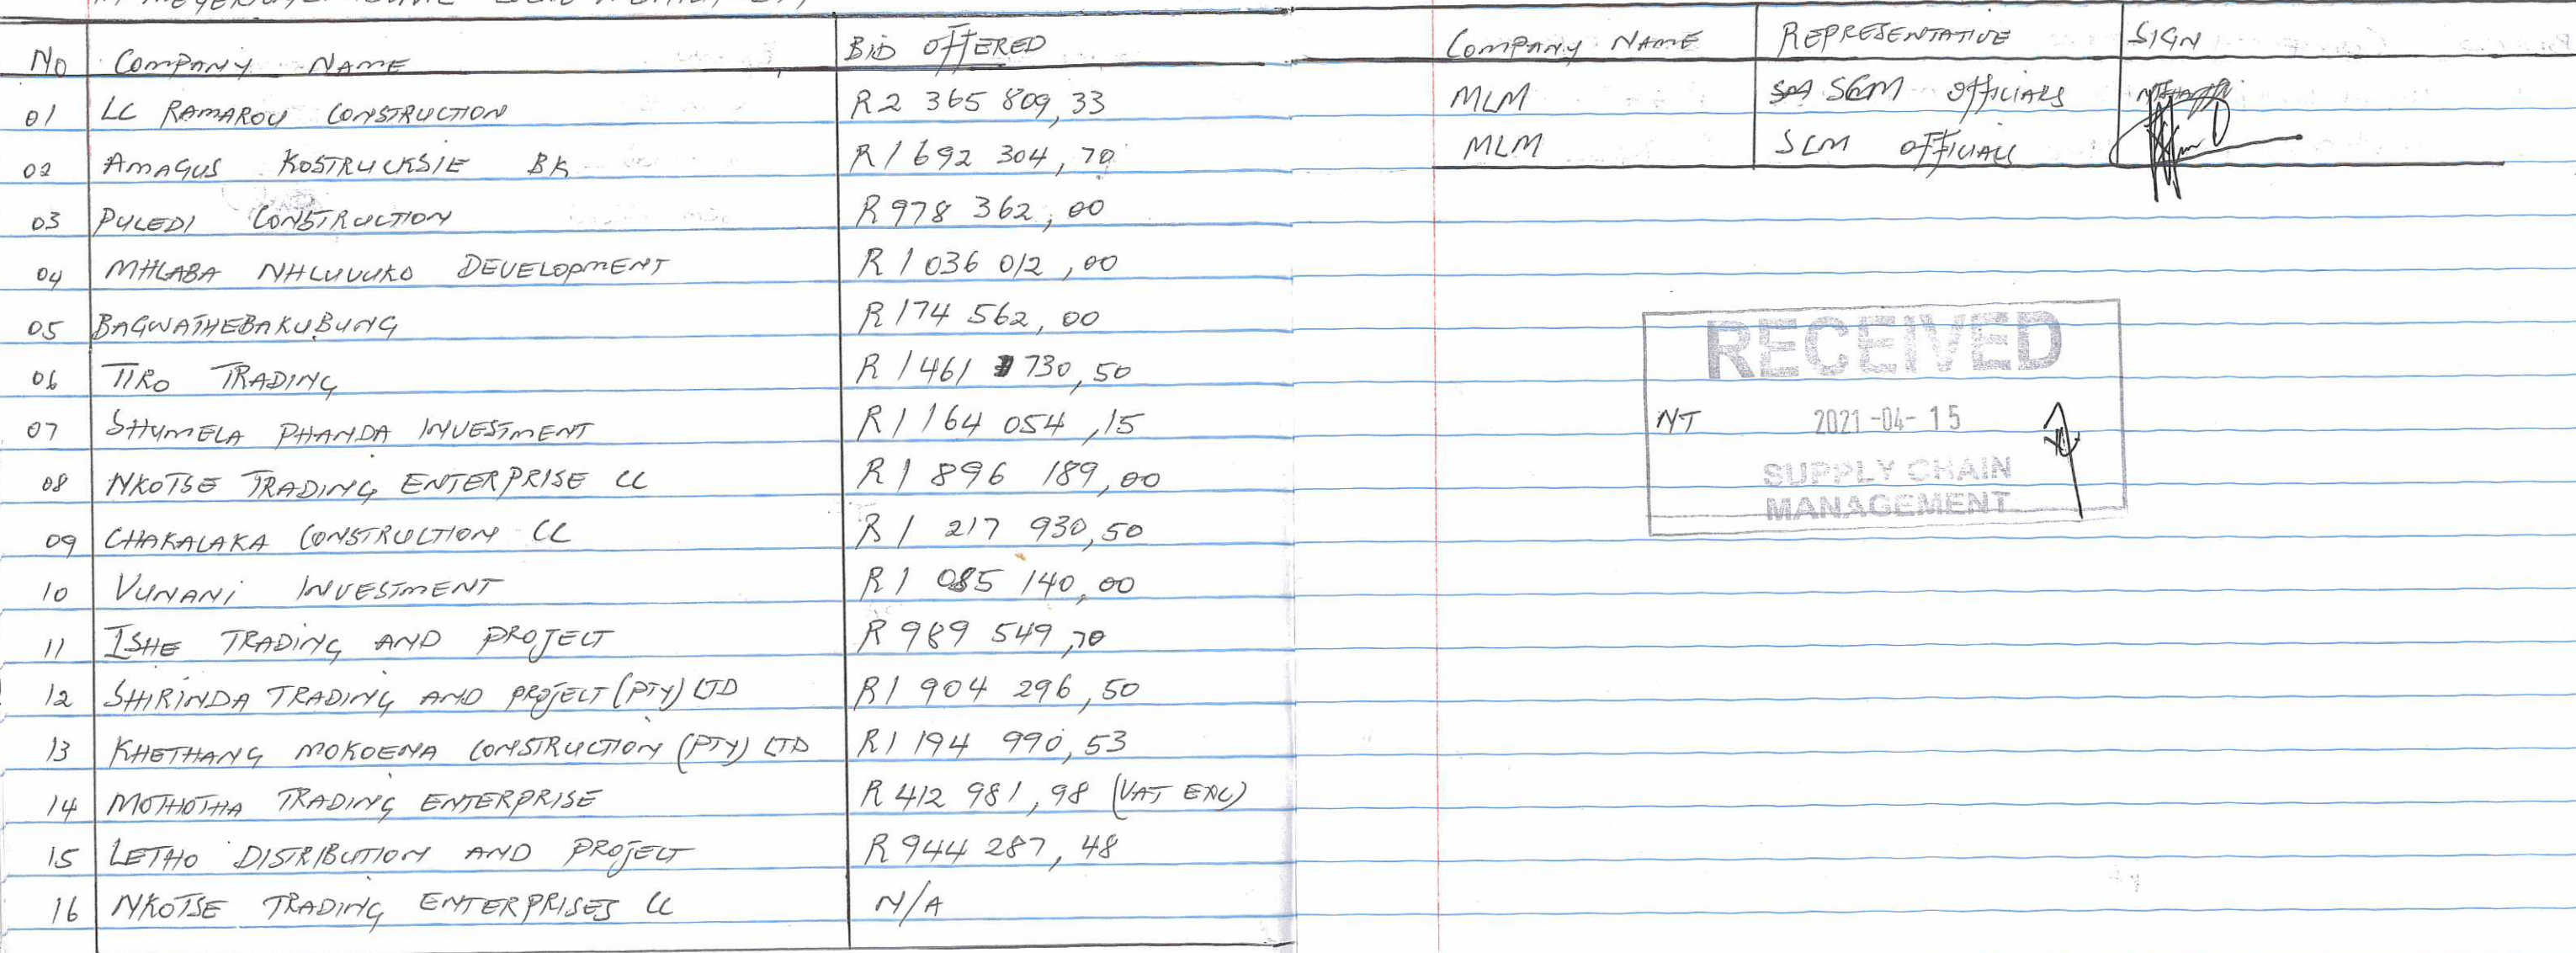 No COMPANY NAME BID OFFERED
01 LC RAMAROU CONSTRUCTION R2 365 809,33
02 AMAGUS KOSTRUCKSIE BK R1 692 304,70
03 PULEDI CONSTRUCTION R978 362,00
04 MHLABA NHLUVUKO DEVELOPMENT R1 036 012,00
05 BAGWATHEBAKUBUNG R174 562,00
06 TIRO TRADING R1461 730,50
07 SHUMELA PHANDA INVESTMENT R1 164 054,15
08 NKOTSE TRADING ENTERPRISE CC R1 896 189,00
09 CHAKALAKA CONSTRUCTION CC R1 217 930,50
10 VUNANI INVESTMENT R1 085 140,00
11 ISHE TRADING AND PROJECT R989 549,70
12 SHIRINDA TRADING AND PROJECT (PTY) LTD R1 904 296,50
13 KHETHANG MOKOENA CONSTRUCTION (PTY) LTD R1 194 990,53
14 MOTHOTHA TRADING ENTERPRISE R412 981,98 (VAT EXC)
15 LETHO DISTRIBUTION AND PROJECT R944 287,48
16 NKOTSE TRADING ENTERPRISES CC N/A
COMPANY NAME REPRESENTATIVE SIGN
MLM SCM OFFICIALS
MLM SCM OFFICIALS
RECEIVED
NT 2021-04-15
SUPPLY CHAIN
MANAGEMENT